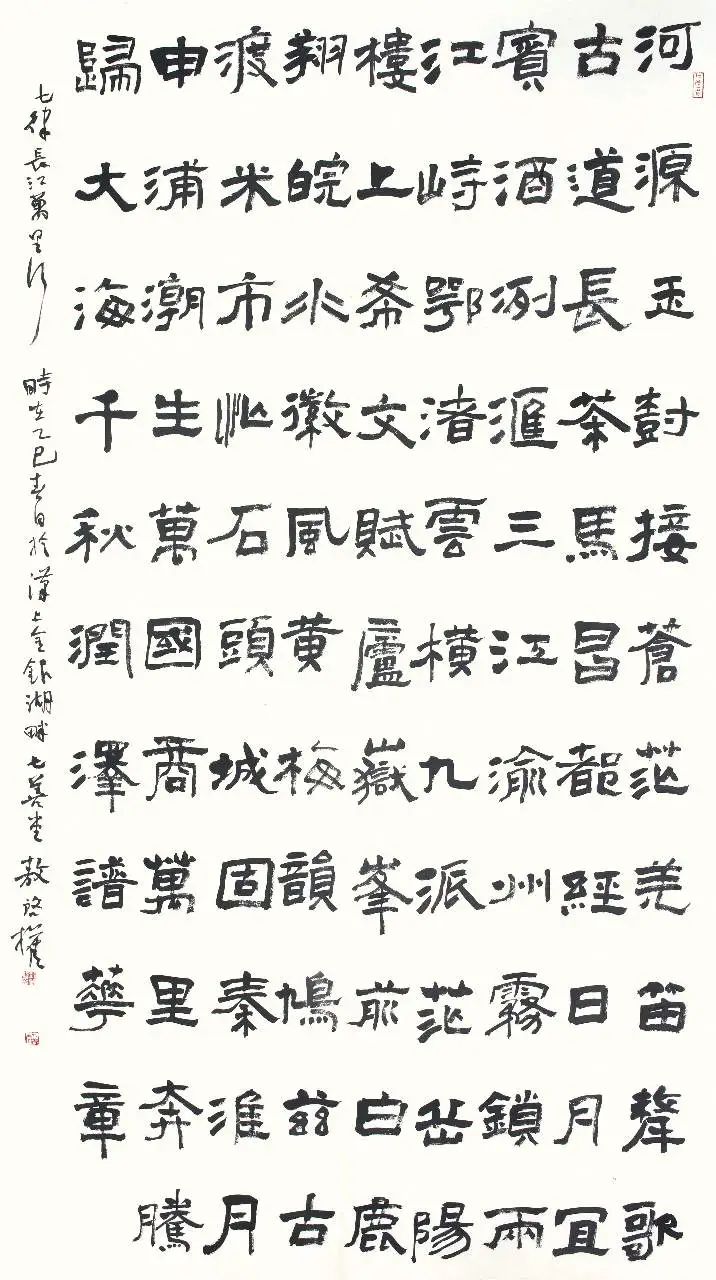 河源玉尌接蒼茫羌笛聲歌
古道長茶馬昌都經日月宜
賓酒洌滙三江渝州霧鎖兩
江峙鄂渚雲橫九派茫岳陽
樓上希文賦廬嶽峯前白鹿
翔皖水徽風黄梅韻鳩茲古
渡米市忙石頭城固秦淮月
申浦潮生萬國商萬里奔騰
歸大海千秋潤澤譜華章
七律長江萬里行 時在乙巳春日於漢上金銀湖畔七善堂 敖啓權